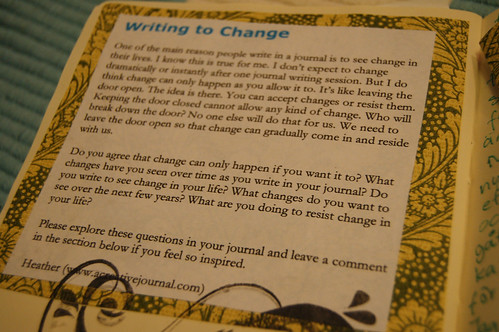 Writing to Change
One of the main reason people write in a journal is to see change in
their lives. I know this is true for me. I don't expect to change
dramatically or instantly after one journal writing session. But I do
think change can only happen as you allow it to. It's like leaving the
door open. The idea is there. You can accept changes or resist them.
Keeping the door closed cannot allow any kind of change. Who will
break down the door? No one else will do that for us. We need to
leave the door open so that change can gradually come in and reside
with us.
Do you agree that change can only happen if you want it to? What
changes have you seen over time as you write in your journal? Do
you write to see change in your life? What changes do you want to
see over the next few years? What are you doing to resist change in
your life?
Please explore these questions in your journal and leave a comment
in the section below if you feel so inspired.
Heather